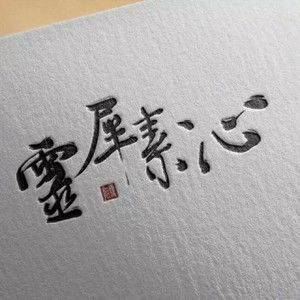 靈犀素心